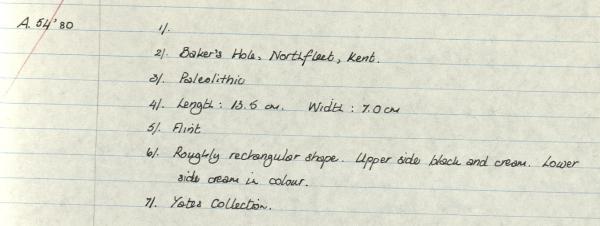 A. 54'80 1/.
2/. Baker's Hole, Northfleet, Kent.
3/. Paleolithic
4/. Length : 13.5 cm. Width : 7.0 cm
5/. Flint
6/. Roughly rectangular shape. Upper side black and cream. Lower
side cream in colour.
7/. Yates Collection.